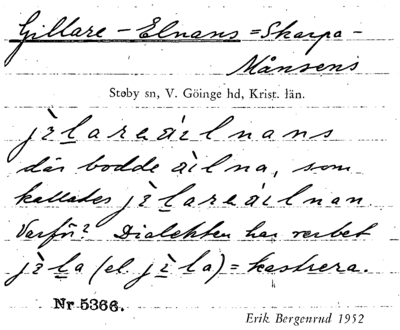 Gillare - Elnans = Skarpa-
Månsens
Støby sn, V. Göinge hd, Krist. län.
jìlareáilnans
där bodde àilna, som
kallades jìlareáilnan.
Varför? Dialekten har verbet
jìla (el. jìla) = kastrera.
Nr 5366.
Erik Bergenrud 1952